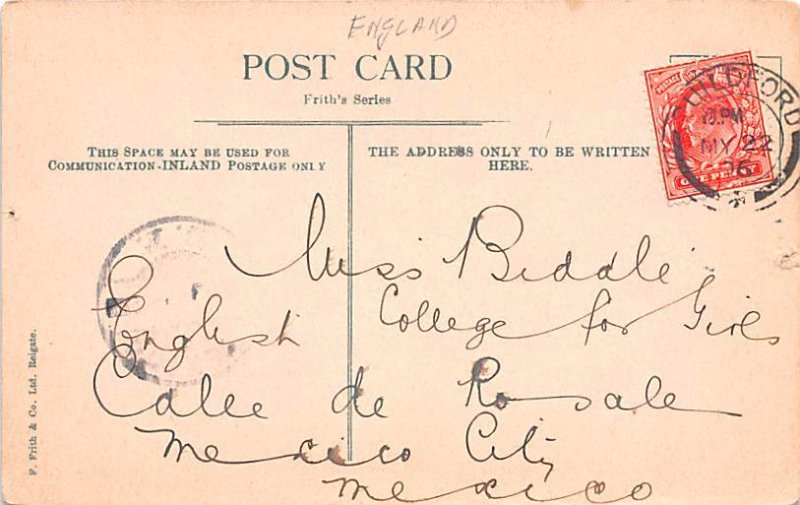 ENGLAND
POST CARD
Frith's Series
THIS SPACE MAY BE USED FOR
COMMUNICATION-INLAND POSTAGE ONLY
THE ADDRESS ONLY TO BE WRITTEN
HERE.
POSTAGE
ONE PENNY
GUILDFORD
PM
MY 22
06
Miss Biddle
English College for Girls
Calle de Rosale
Mexico City
Mexico
F. Frith & Co. Ltd. Reigate.